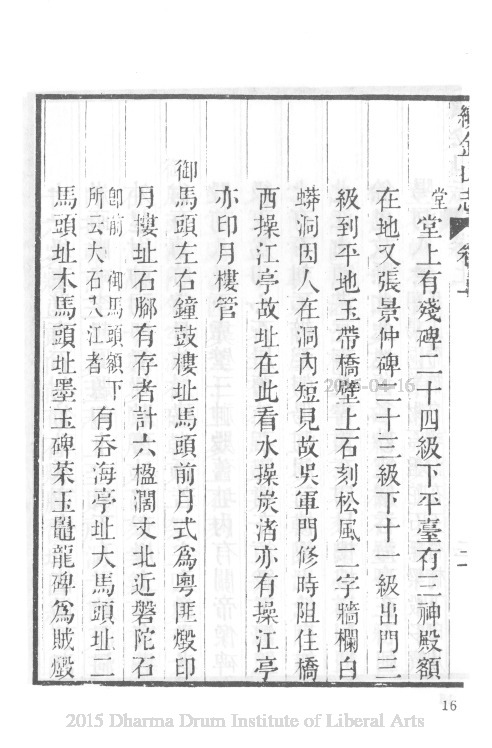 續金山志 卷上
二
堂 堂上有殘碑二十四級下平臺有三神殿額
在地又張景仲碑二十三級下十一級出門三
級到平地玉帶橋壁上石刻松風二字牆欄白
蟒洞因人在洞內短見故吳軍門修時阻住橋
西操江亭故址在此看水操炭渚亦有操江亭
亦印月樓管
御馬頭左右鐘鼓樓址馬頭前月式為粵匪燬印
月樓址石腳有存者計六楹濶丈北近磐陀石
卽前 御馬頭額下
所云大石入江者
有吞海亭址大馬頭址二
馬頭址木馬頭址墨玉碑菜玉鼉龍碑為賊燬
16
2015 Dharma Drum Institute of Liberal Arts